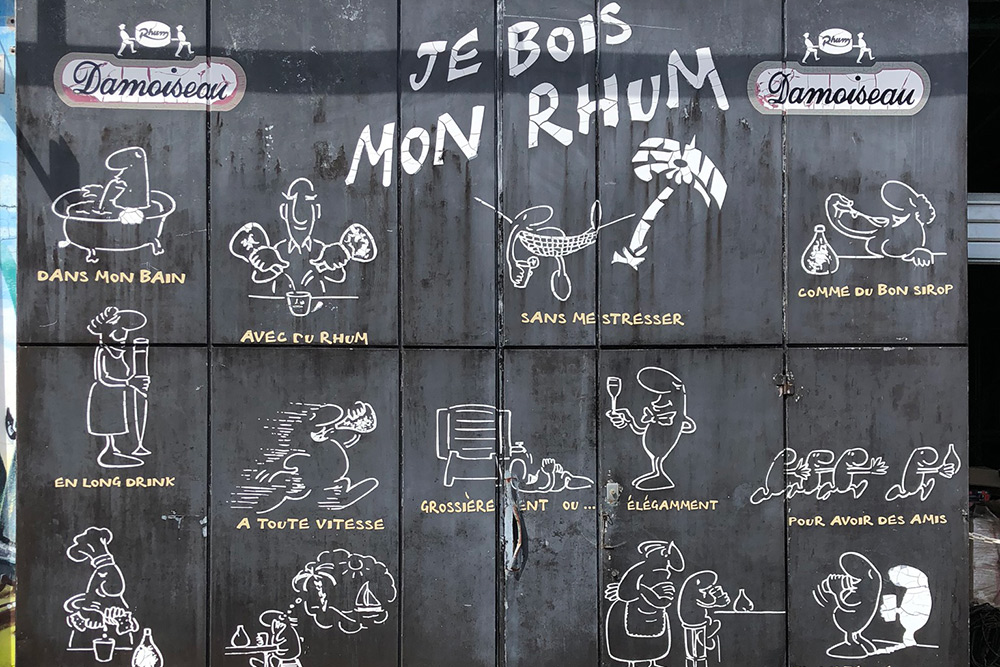 Rhum
Damoiseau
JE BOIS
MON RHUM
Rhum
Damoiseau
DANS MON BAIN
AVEC DU RHUM
SANS ME STRESSER
COMME DU BON SIROP
EN LONG DRINK
A TOUTE VITESSE
GROSSIÈRE ENT OU ...
ÉLÉGAMMENT
POUR AVOIR DES AMIS